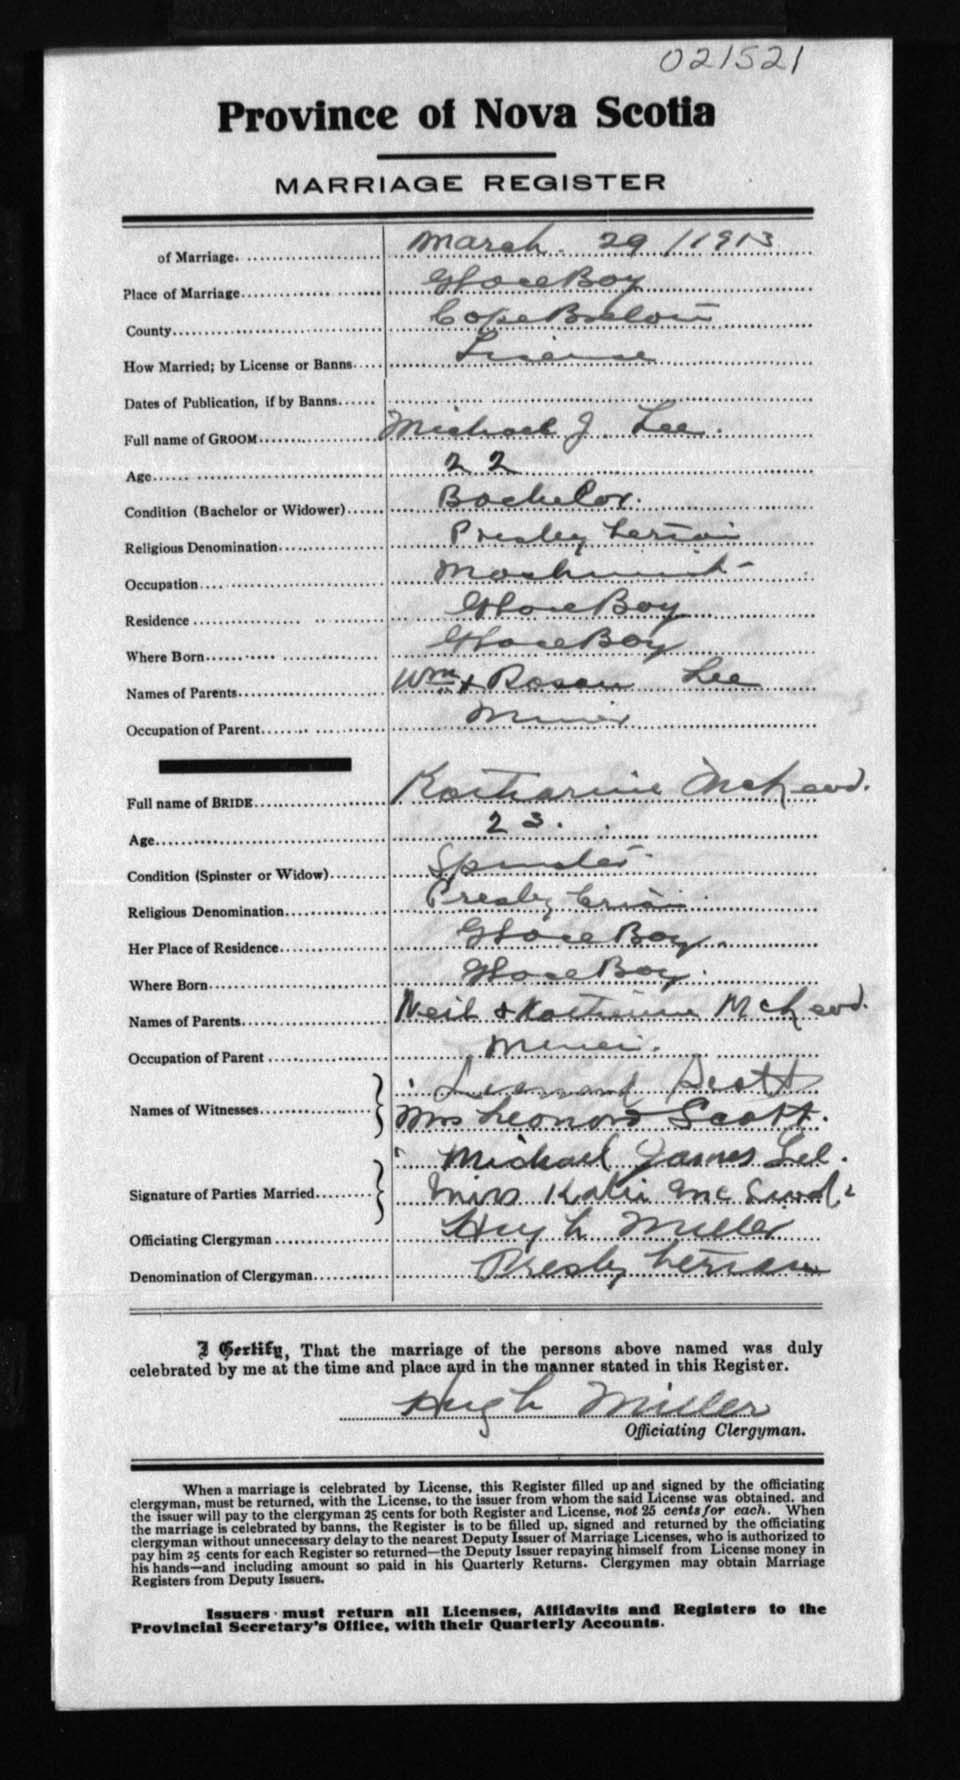 021521
Province of Nova Scotia
MARRIAGE REGISTER
of Marriage. March. 29 / 1913
Place of Marriage Glace Bay
County Cape Breton
How Married; by License or Banns License
Dates of Publication, if by Banns
Full name of GROOM Michael J. Lee.
Age 22
Condition (Bachelor or Widower) Bachelor.
Religious Denomination Presbyterian
Occupation Machinist
Residence Glace Bay
Where Born Glace Bay
Names of Parents Wm & Rosau Lee
Occupation of Parent Miner
Full name of BRIDE Katharine McLeod.
Age 23.
Condition (Spinster or Widow) Spinster
Religious Denomination Presbyterian
Her Place of Residence Glace Bay.
Where Born Glace Bay.
Names of Parents Neil & Katherine McLeod.
Occupation of Parent Miner.
Names of Witnesses Leonard Scott
Mrs Leonard Scott.
Michael James Lee.
Signature of Parties Married Miss Katie Mc
Officiating Clergyman Hugh Miller
Denomination of Clergyman Presbyterian
I Certify, That the marriage of the persons above named was duly
celebrated by me at the time and place and in the manner stated in this Register.
Hugh Miller
Officiating Clergyman.
When a marriage is celebrated by License, this Register filled up and signed by the officiating
clergyman, must be returned, with the License, to the issuer from whom the said License was obtained, and
the issuer will pay to the clergyman 25 cents for both Register and License, not 25 cents for each. When
the marriage is celebrated by banns, the Register is to be filled up, signed and returned by the officiating
clergyman without unnecessary delay to the nearest Deputy Issuer of Marriage Licenses, who is authorized to
pay him 25 cents for each Register so returned—the Deputy Issuer repaying himself from License money in
his hands—and including amount so paid in his Quarterly Returns. Clergymen may obtain Marriage
Registers from Deputy Issuers.
Issuers must return all Licenses, Affidavits and Registers to the
Provincial Secretary's Office, with their Quarterly Accounts.